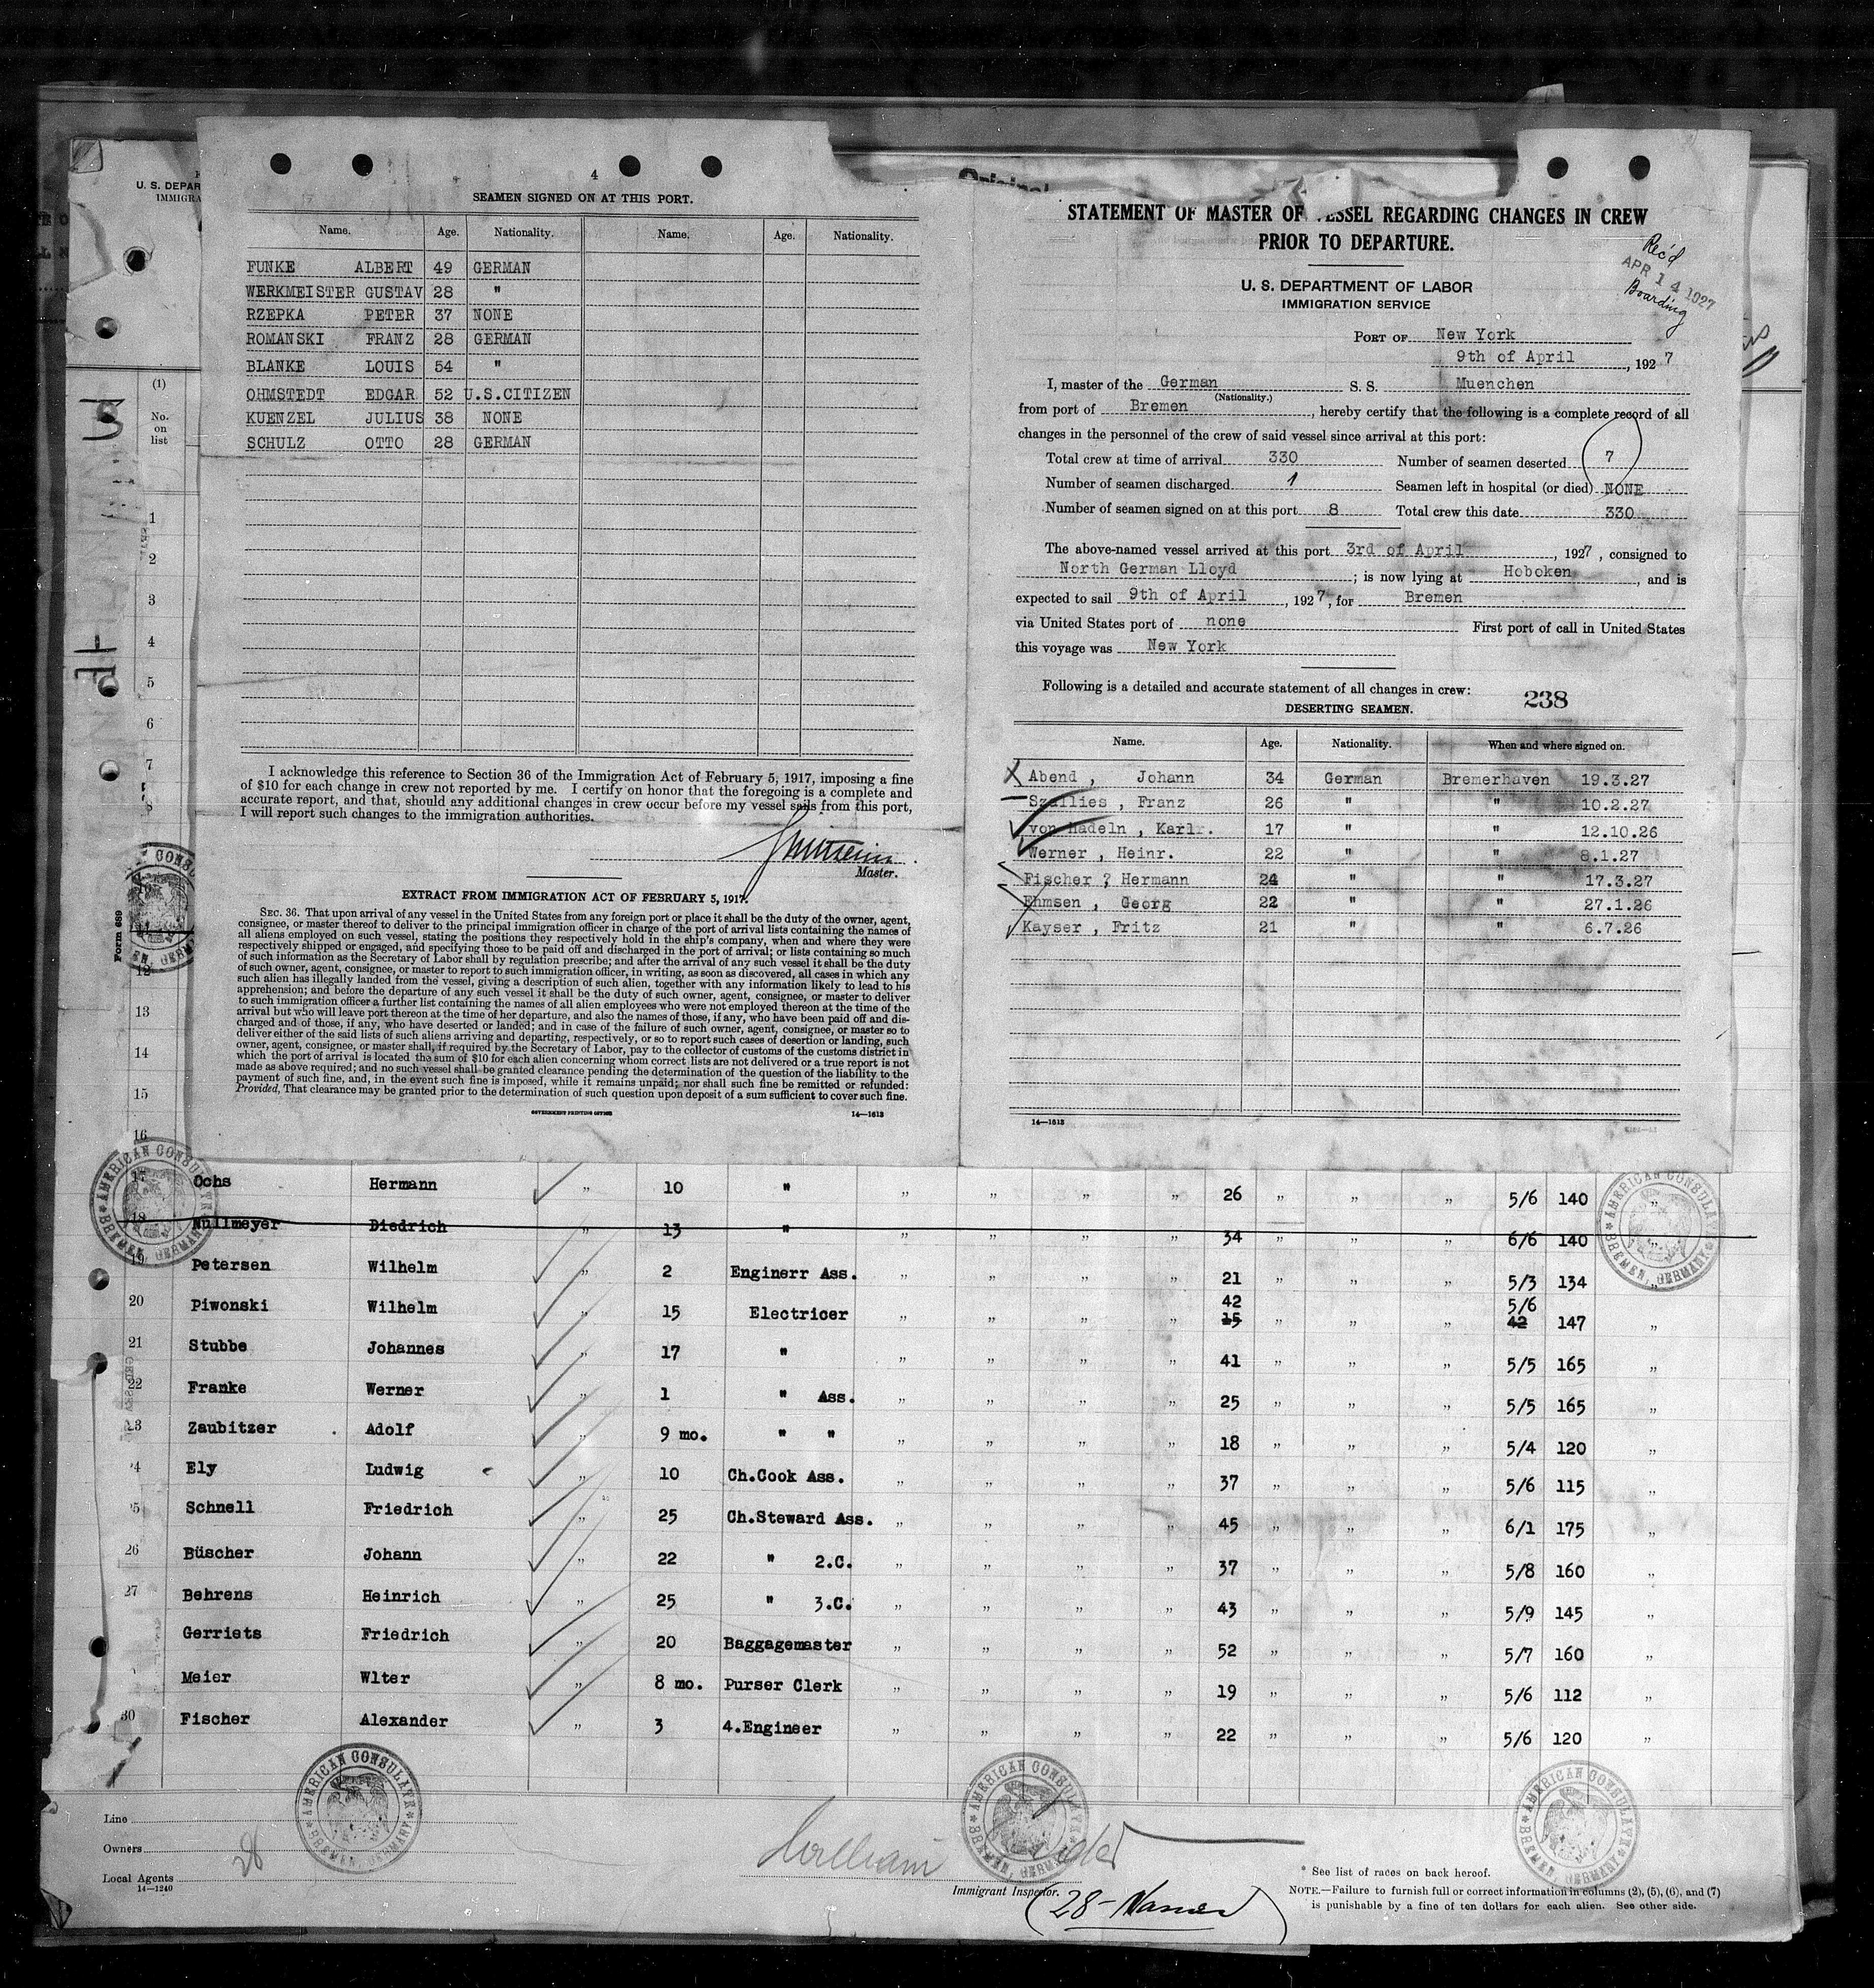 U. S. DEPAR
IMMIGRA
(1)
No.
on
list
4
SEAMEN SIGNED ON AT THIS PORT.
Name. Age. Nationality. Name. Age. Nationality.
FUNKE ALBERT 49 GERMAN
WERKMEISTER GUSTAV 28 "
RZEPKA PETER 37 NONE
ROMANSKI FRANZ 28 GERMAN
BLANKE LOUIS 54 "
OHMSTEDT EDGAR 52 U.S.CITIZEN
KUENZEL JULIUS 38 NONE
SCHULZ OTTO 28 GERMAN
I acknowledge this reference to Section 36 of the Immigration Act of February 5, 1917, imposing a fine
of $10 for each change in crew not reported by me. I certify on honor that the foregoing is a complete and
accurate report, and that, should any additional changes in crew occur before my vessel sails from this port,
I will report such changes to the immigration authorities.
Master.
EXTRACT FROM IMMIGRATION ACT OF FEBRUARY 5, 1917.
SEC. 36. That upon arrival of any vessel in the United States from any foreign port or place it shall be the duty of the owner, agent,
consignee, or master thereof to deliver to the principal immigration officer in charge of the port of arrival lists containing the names of
all aliens employed on such vessel, stating the positions they respectively hold in the ship's company, when and where they were
respectively shipped or engaged, and specifying those to be paid off and discharged in the port of arrival; or lists containing so much
of such information as the Secretary of Labor shall by regulation prescribe; and after the arrival of any such vessel it shall be the duty
of such owner, agent, consignee, or master to report to such immigration officer, in writing, as soon as discovered, all cases in which any
such alien has illegally landed from the vessel, giving a description of such alien, together with any information likely to lead to his
apprehension; and before the departure of any such vessel it shall be the duty of such owner, agent, consignee, or master to deliver
to such immigration officer a further list containing the names of all alien employees who were not employed thereon at the time of the
arrival but who will leave port thereon at the time of her departure, and also the names of those, if any, who have been paid off and dis-
charged and of those, if any, who have deserted or landed; and in case of the failure of such owner, agent, consignee, or master so to
deliver either of the said lists of such aliens arriving and departing, respectively, or so to report such cases of desertion or landing, such
owner, agent, consignee, or master shall, if required by the Secretary of Labor, pay to the collector of customs of the customs district in
which the port of arrival is located the sum of $10 for each alien concerning whom correct lists are not delivered or a true report is not
made as above required; and no such vessel shall be granted clearance pending the determination of the question of the liability to the
payment of such fine, and, in the event such fine is imposed, while it remains unpaid; nor shall such fine be remitted or refunded:
Provided, That clearance may be granted prior to the determination of such question upon deposit of a sum sufficient to cover such fine.
GOVERNMENT PRINTING OFFICE 14—1613
Original
STATEMENT OF MASTER OF VESSEL REGARDING CHANGES IN CREW
PRIOR TO DEPARTURE.
Rec'd
APR 14 1927
Boarding
U. S. DEPARTMENT OF LABOR
IMMIGRATION SERVICE
PORT OF New York
9th of April, 1927
I, master of the German S. S. Muenchen
(Nationality.)
from port of Bremen, hereby certify that the following is a complete record of all
changes in the personnel of the crew of said vessel since arrival at this port:
Total crew at time of arrival 330 Number of seamen deserted 7
Number of seamen discharged 1 Seamen left in hospital (or died) NONE
Number of seamen signed on at this port 8 Total crew this date 330
The above-named vessel arrived at this port 3rd of April, 1927, consigned to
North German Lloyd; is now lying at Hoboken, and is
expected to sail 9th of April, 1927, for Bremen
via United States port of none First port of call in United States
this voyage was New York
Following is a detailed and accurate statement of all changes in crew: 238
DESERTING SEAMEN.
Name. Age. Nationality. When and where signed on.
X Abend, Johann 34 German Bremerhaven 19.3.27
Szallies, Franz 26 " " 10.2.27
von Hadeln, Karl. 17 " " 12.10.26
Werner, Heinr. 22 " " 8.1.27
Fischer ? Hermann 24 " " 17.3.27
Ehmsen, Georg 22 " " 27.1.26
Kayser, Fritz 21 " " 6.7.26
14—1613
1
2
3
4
5
6
7
8
Form 689
12
13
14
15
16
17 Ochs Hermann " 10 " " " " " 26 " " " 5/6 140 "
18 Nullmeyer Diedrich " 13 " " " " " 34 " " " 6/6 140 "
19 Petersen Wilhelm " 2 Enginerr Ass. " " " " 21 " " " 5/3 134 "
20 Piwonski Wilhelm " 15 Electricer " " " " 42 15 " " " 5/6 42 147 "
21 Stubbe Johannes " 17 " " " " " 41 " " " 5/5 165 "
22 Franke Werner " 1 " Ass. " " " " 25 " " " 5/5 165 "
23 Zaubitzer Adolf " 9 mo. " " " " " " 18 " " " 5/4 120 "
4 Ely Ludwig " 10 Ch.Cook Ass. " " " " 37 " " " 5/6 115 "
5 Schnell Friedrich " 25 Ch.Steward Ass. " " " " 45 " " " 6/1 175 "
26 Büscher Johann " 22 " 2.C. " " " " 37 " " " 5/8 160 "
27 Behrens Heinrich " 25 " 3.C. " " " " 43 " " " 5/9 145 "
Gerriets Friedrich " 20 Baggagemaster " " " " 52 " " " 5/7 160 "
Meier Wlter " 8 mo. Purser Clerk " " " " 19 " " " 5/6 112 "
30 Fischer Alexander " 3 4.Engineer " " " " 22 " " " 5/6 120 "
AMERICAN CONSULATE
BREMEN, GERMANY
AMERICAN CONSULATE
BREMEN, GERMANY
AMERICAN CONSULATE
BREMEN, GERMANY
AMERICAN CONSULATE
BREMEN, GERMANY
AMERICAN CONSULATE
BREMEN, GERMANY
Line
Owners
Local Agents
14—1240
28
William
Immigrant Inspector.
(28-Names)
* See list of races on back hereof.
NOTE.—Failure to furnish full or correct information in columns (2), (5), (6), and (7)
is punishable by a fine of ten dollars for each alien. See other side.